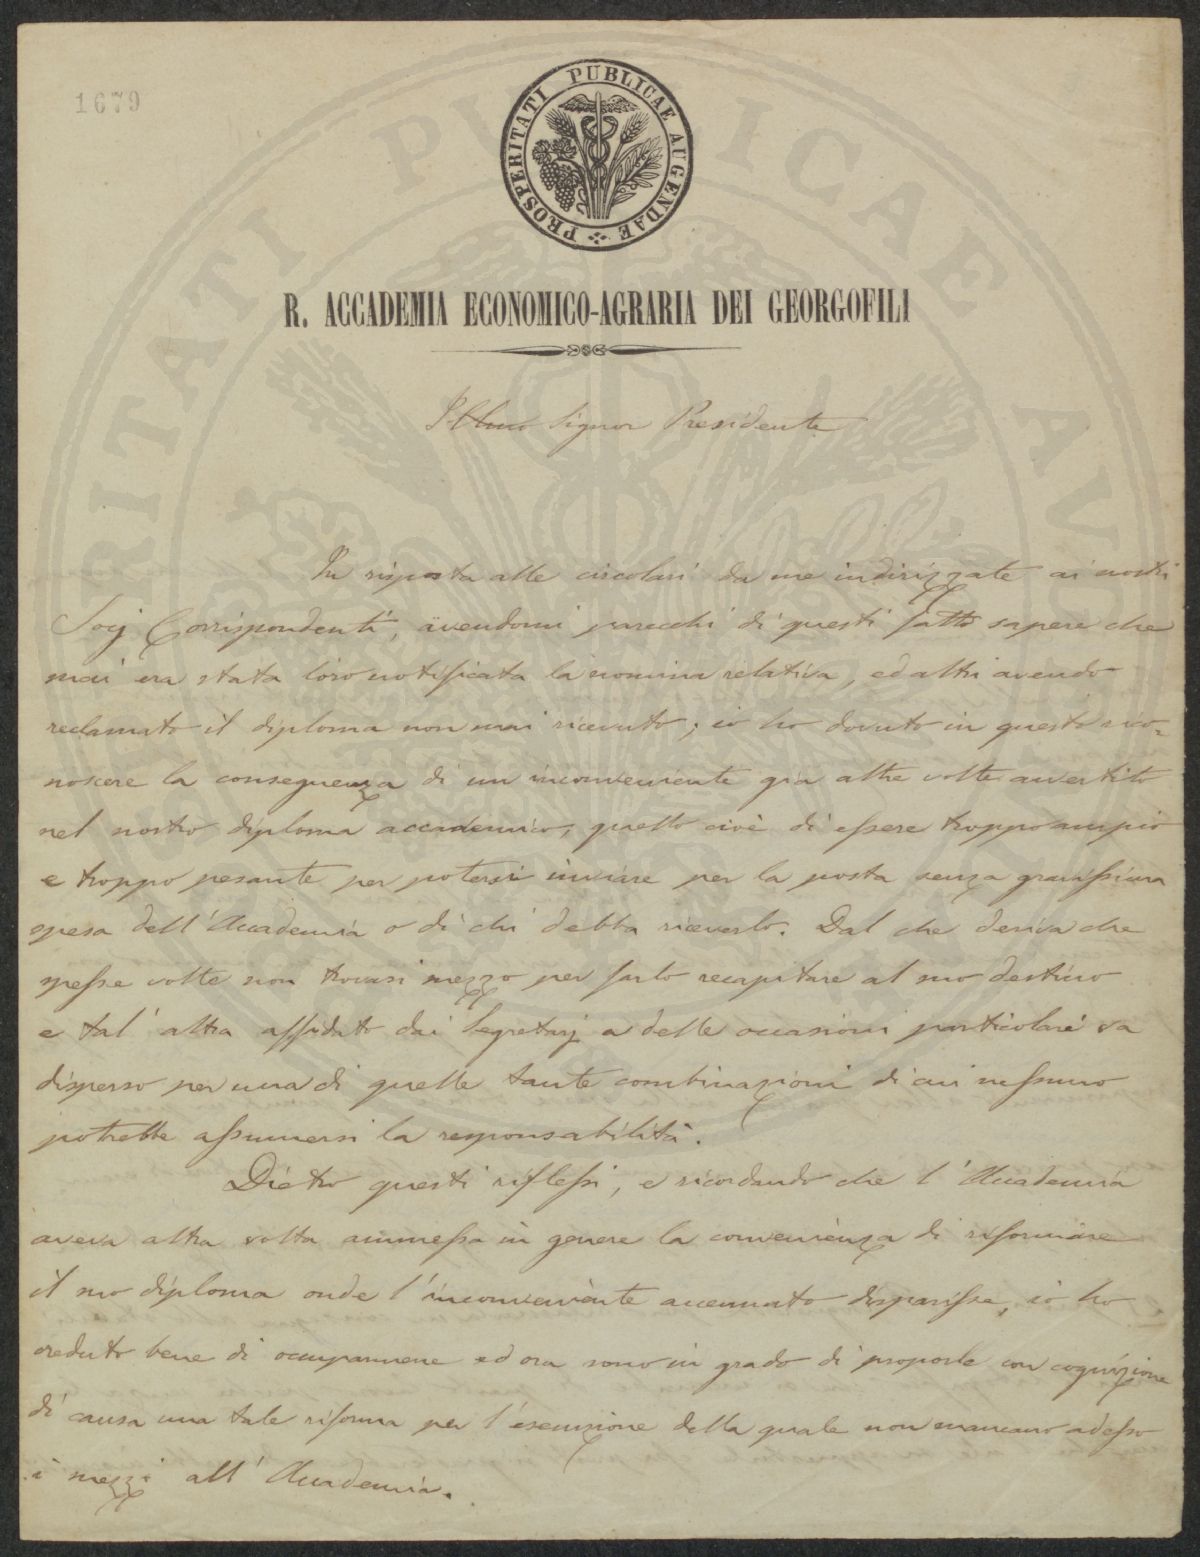 1679
PROSPERITATI PUBLICAE AUGENDAE
R. ACCADEMIA ECONOMICO-AGRARIA DEI GEORGOFILI
Illmo Signor Presidente
In risposta alle circolari da me indirizzate ai nostri
Socj Corrispondenti, avendomi parecchi di questi fatto sapere che
mai era stata loro notificata la nomina relativa, ed altri avendo
reclamato il diploma non mai ricevuto; io ho dovuto in questo rico=
noscere la conseguenza di un inconveniente gia altre volte avvertito
nel nostro diploma accademico, quello cioè di essere troppo ampio
e troppo pesante per potersi inviare per la posta senza gravissima
spesa dell'Accademia o di chi debba riceverlo. Dal che deriva che
spesse volte non trovasi mezzo per farlo recapitare al suo destino
e tal' altra affidato dai Segretarj a delle occasioni particolari va
disperso per una di quelle tante combinazioni di cui nessuno
potrebbe assumersi la responsabilità.
Dietro questi riflessi, e ricordando che l'Accademia
aveva altra volta ammessa in genere la convenienza di riformare
il suo diploma onde l'inconveniente accennato disparisse, io ho
creduto bene di occuparmene ed ora sono in grado di proporle con cognizione
di causa una tale riforma per l'esecuzione della quale non mancano adesso
i mezzi all'Accademia.